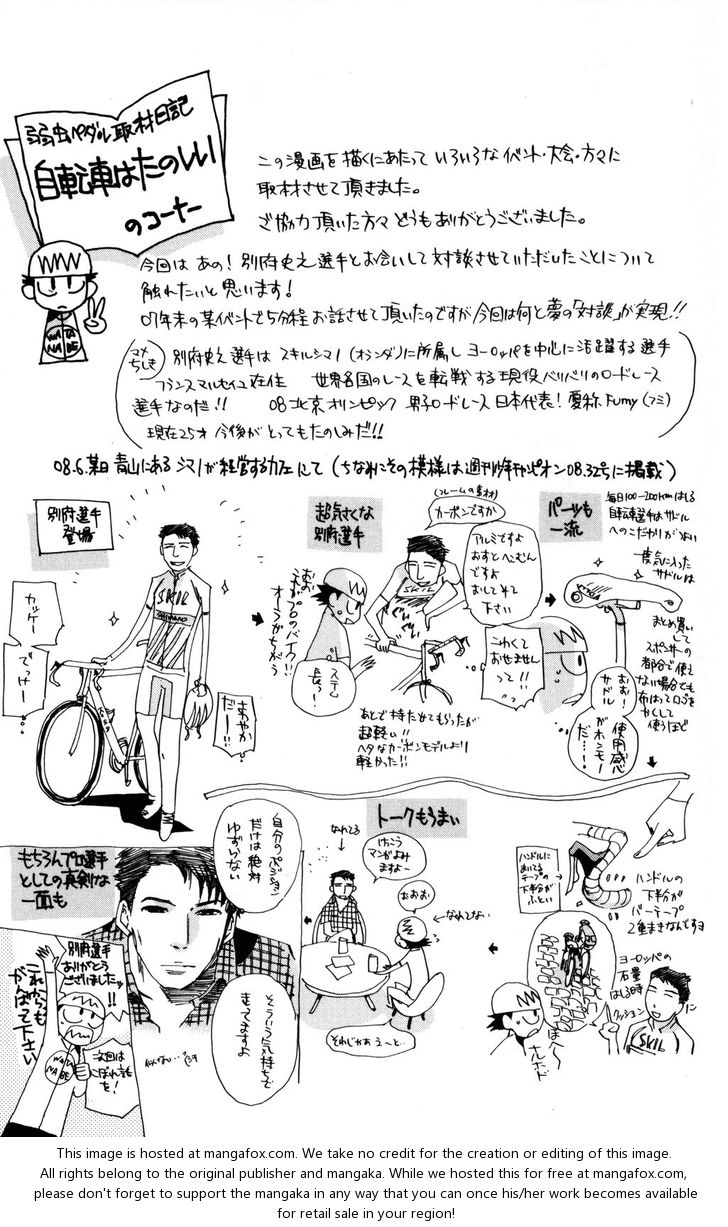 弱虫ペダル取材日記
自転車はたのしい
のコーナー
この漫画を描くにあたって いろいろなイベント・大会・方々に
取材させて頂きました。
ご協力頂いた方々 どうもありがとうございました。
今回は あの！別府史之選手とお会いして対談させていただいたことについて
触れたいと思います！
07年末の某イベントで5分程お話させて頂いたのですが今回は何と夢の「対談」が実現!!
マメちしき
別府史之選手は スキルシマノ(オランダ)に所属し ヨーロッパを中心に活躍する選手
フランスマルセイユ在住 世界各国のレースを転戦する現役バリバリのロードレース
選手なのだ!! 08北京オリンピック 男子ロードレース日本代表！愛称Fumy(フミ)
現在25才 今後がとってもたのしみだ!!
08.6.某日 青山にある シマノが経営するカフェにて(ちなみにその模様は週刊少年チャンピオン08.32号に掲載)
別府選手
登場
カッケー
でっけー！
SKIL
SHIMANO
さわやか
だー!!
超気さくな
別府選手
(フレームの素材)
カーボンですか
アルミですよ
おすとへこむん
ですよ
おしてみて
下さい
SKIL
ぐいぐい
こわくて
おせません
って!!
あとで持たせてもらったが
超軽い!!
ヘタなカーボンモデルより
軽かった!!
パーツも
一流
毎日100〜200kmはしる
自転車選手はサドル
へのこだわりがつよい
一度気に入った
サドルは
まとめ買い
して
スポンサーの
都合で使え
ない場合でも
布はってロゴを
かくして
使うほど
おお！
サドル
使用感
がホンモノ
だ…！
もちろんプロ選手
としての真剣な
一面も
自分のポジション
だけは絶対
ゆずらない
そういう気持ちで
走ってますよ
別府選手
ありがとう
ございましたッ
!!
これからも
がんばって下さい
次回は
こぼれ話
を！
WATA
NABE
トークもうまい
なれてる
けっこう
マンガよみ
ますよー
おおお
なれてない
それじゃあ えーと…
ハンドルに
まいてる
テープの
下半分が
ふとい
ハンドルの
下半分が
バーテープ
2重まきなんですヨ
ヨーロッパの
石畳
はしる時
クッション
に
SKIL
はー
ナルホド
This image is hosted at mangafox.com. We take no credit for the creation or editing of this image.
All rights belong to the original publisher and mangaka. While we hosted this for free at mangafox.com,
please don't forget to support the mangaka in any way that you can once his/her work becomes available
for retail sale in your region!